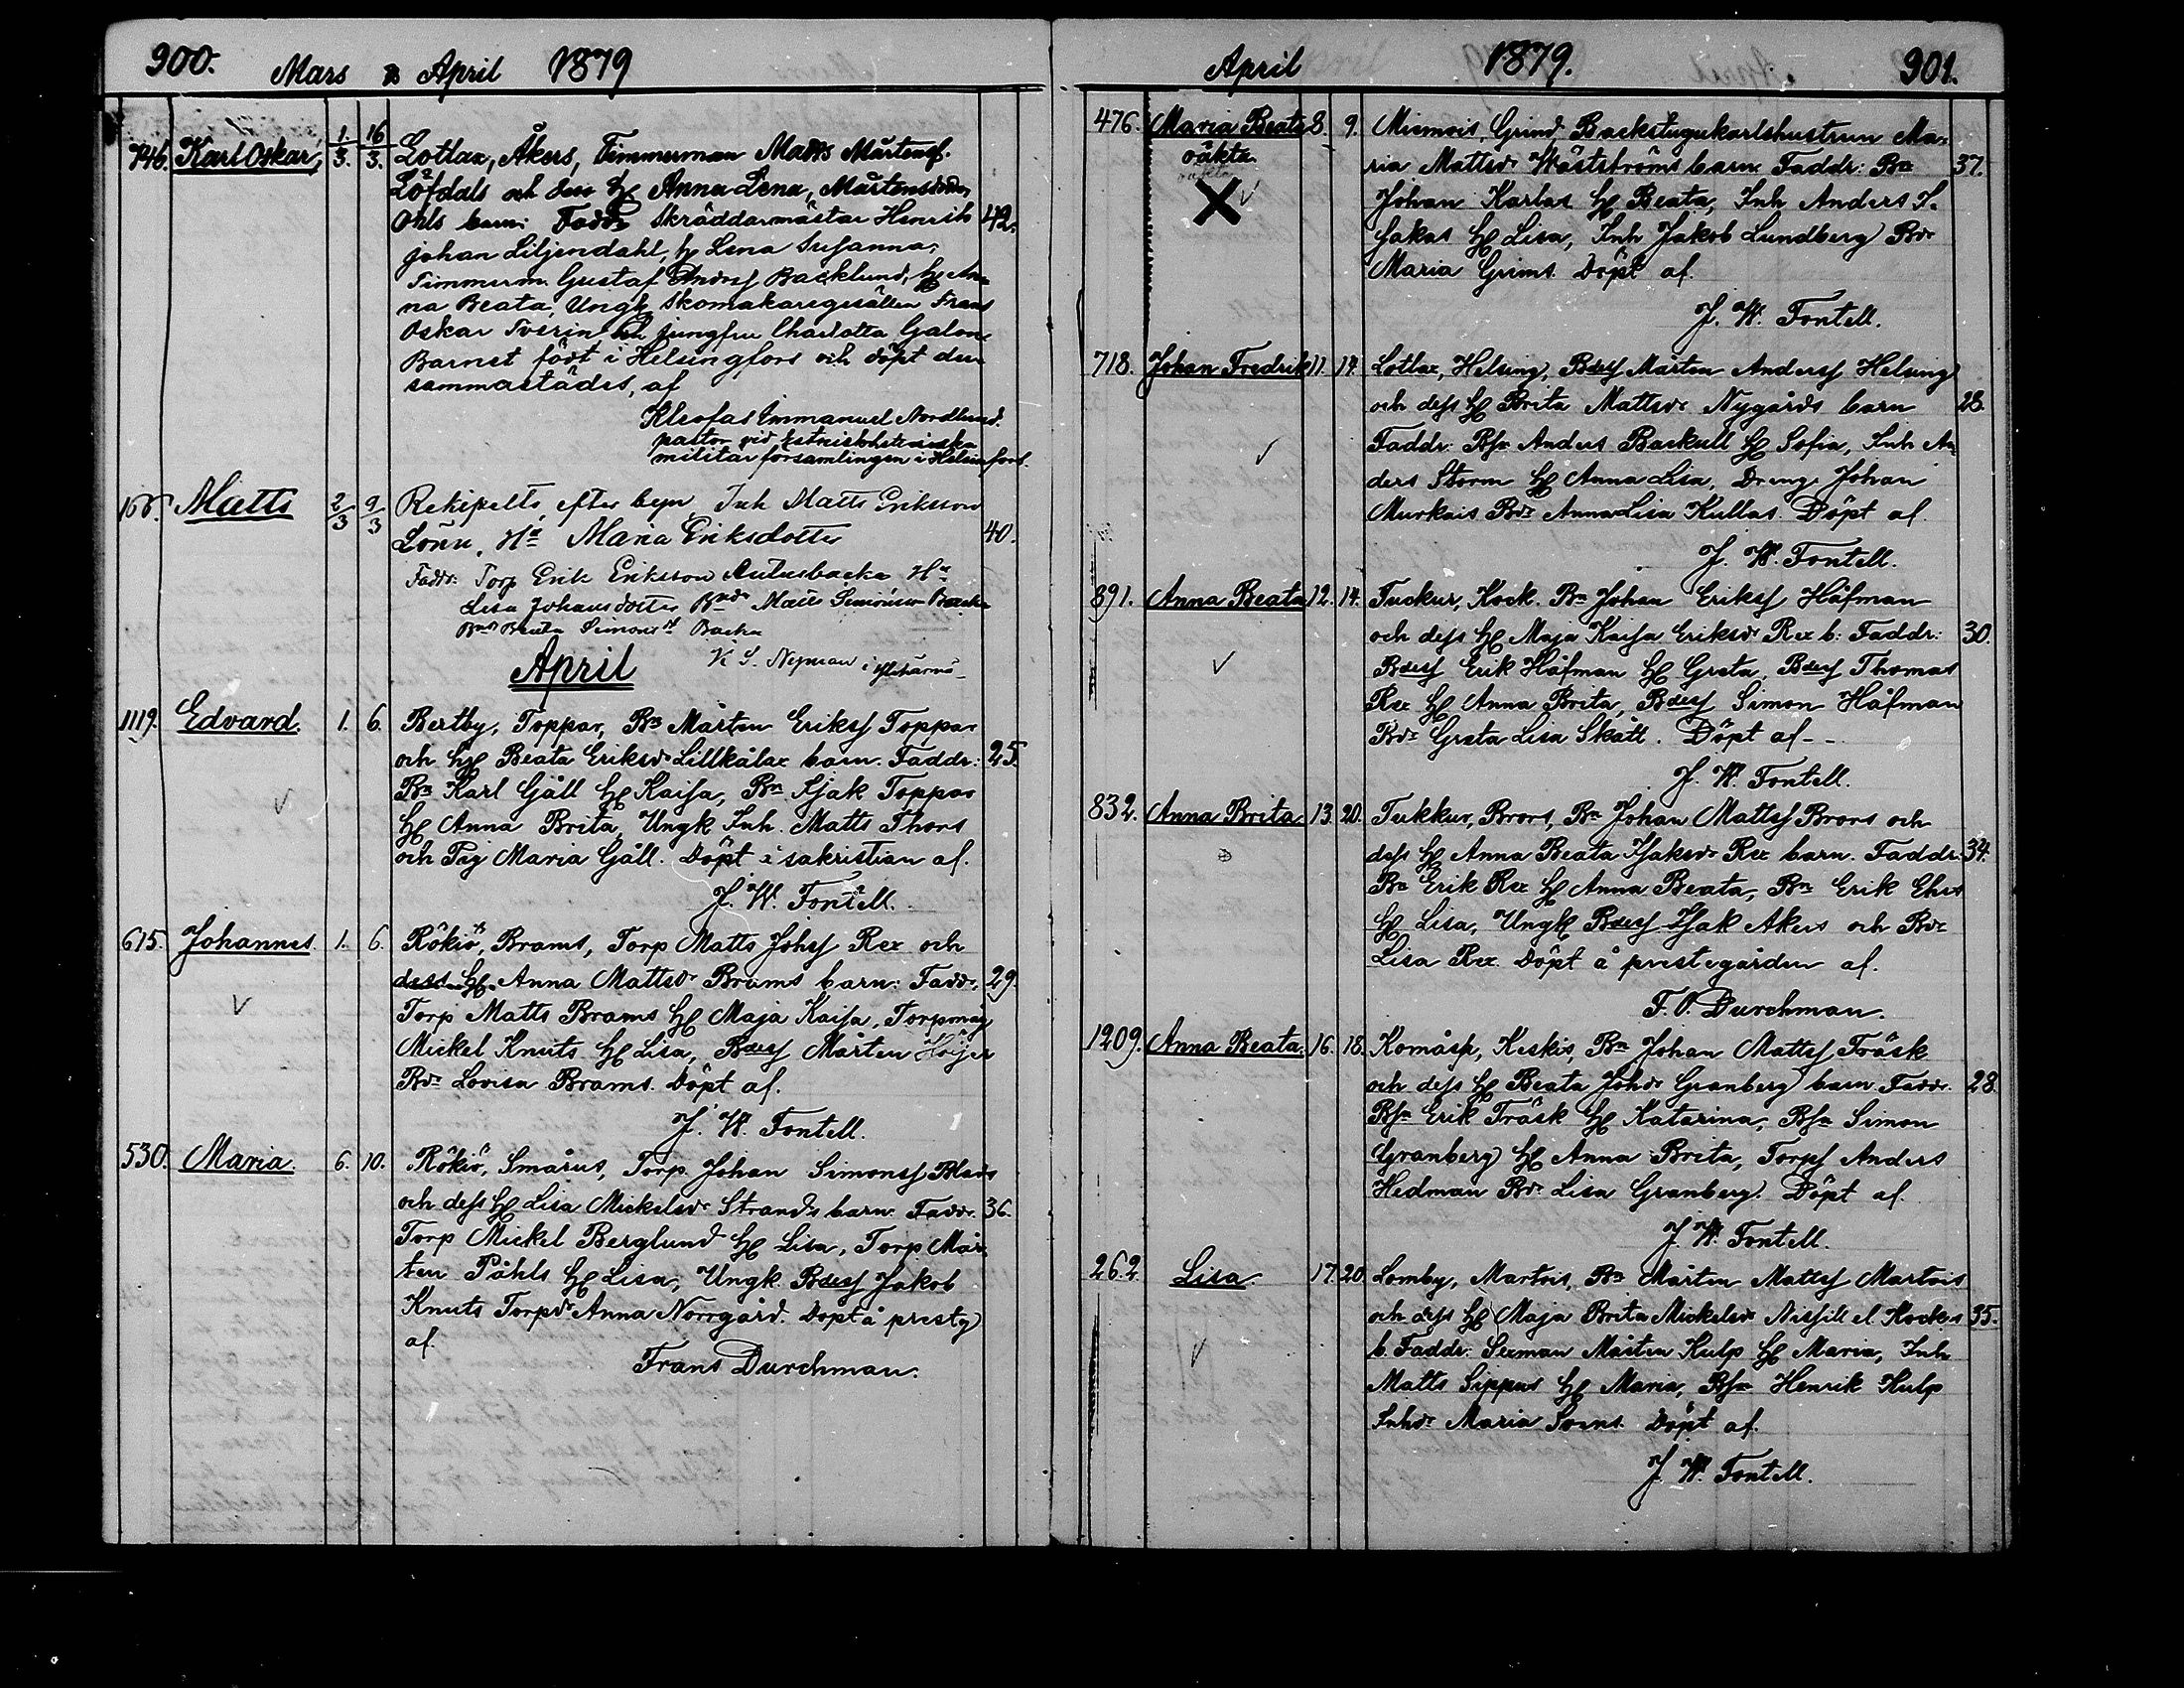 900. Mars & April 1879
746. Karl Oskar, 1/3. 16/3. Lotlax, Åkers, Timmerman Matts Mårtenss.
Löfdals och dess Hu Anna Lena, Mårtensdotter
Ohls barn: Faddr Skräddarmästar Henrik 42.
Johan Liljendahl, Hu Lena Susanna,
Timmerm. Gustaf Andess Backlund, Hu An-
na Beata, Ungk Skomakaregesällen Frans
Oskar Tverin och jungfru Charlotta Galon.
Barnet födt i Helsingfors och döpt der-
sammastädes, af
Kleofas Immanuel Nordlund.
pastor vid
militärförsamlingen i Helsingfors.
Matts 2/3 9/3 Rekipelts, efter begn, Inh Matts Eriksson
Lönn, Hu Maria Eriksdotter 40.
Faddr: Torp Erik Eriksson Hu
Lisa Johansdotter Matts Simonsson Backa
Simonsd. Backa
K. S. Nyman i
April
1119. Edvard. 1. 6. Bertby, Toppar, Bn Mårten Erikss Toppar
och Hu Beata Eriksdr Lillkålax barn. Faddr: 25.
Bn Karl Gåll Hu Kaisa, Bn Isak Toppar
Hu Anna Brita, Ungk Inh. Matts Thors
och Pig Maria Gåll. Döpt i sakristian af.
J. W. Fontell.
615. Johannes 1. 6. Rökiö, Brams, Torp Matts Johss Rex och
dess Hu Anna Mattsdr Brams barn: Faddr. 29.
Torp Matts Brams Hu Maja Kaisa, Torpmåg
Mickel Knuts Hu Lisa, Bdess Mårten Höijer
Bdr Lovisa Brams. Döpt af.
J. W. Fontell.
530. Maria. 6. 10. Rökiö, Smårus, Torp. Johan Simonss Blads
och dess Hu Lisa Mickelsdr Strands barn. Faddr. 36.
Torp Mickel Berglund Hu Lisa, Torp Mår-
ten Påhls Hu Lisa, Ungk. Bdess Jakob
Knuts Torpdr Anna Norrgård. Döpt å prestg
af.
Frans Durchman.
April 1879. 901.
476. Maria Beata 8. 9. Miemois, Grind Backstugukarlshustrun Ma-
oäkta ria Mattsdr Wästströms barn. Faddr: Bn 37.
Johan Karlas Hu Beata, Inh Anders I-
sakas Hu Lisa, Inh Jakob Lundberg Bdr
Maria Grims. Döpt af.
J. W. Fontell.
718. Johan Fredrik 11. 14. Lotlax, Helsing, Bdess Mårten Anderss Helsing
och dess Hu Brita Mattsdr Nygårds barn 28.
Faddr. Bn Anders Backull Hu Sofia, Inh An-
ders Storm Hu Anna Lisa, Dreng Johan
Murkais Bdr Anna Lisa Kullas. Döpt af.
J. W. Fontell.
891. Anna Beata 12. 14. Tuckur, Kock. Bn Johan Erikss Håfman
och dess Hu Maja Kaisa Eriksdr Rex b: Faddr: 30.
Bdess Erik Håfman Hu Greta, Bdess Thomas
Rex Hu Anna Brita, Bdess Simon Håfman
Bdr Greta Lisa Skått. Döpt af - -
J. W. Fontell.
832. Anna Brita 13. 20. Tukkur, Brors, Bn Johan Mattss Brors och
dess Hu Anna Beata Isaksdr Rex barn. Faddr. 34.
Bn Erik Rex Hu Anna Beata, Bn Erik Ehrs
Hu Lisa, Ungk Bdess Isak Akers och Bdr
Lisa Rex. Döpt å prestegården af.
F. O. Durchman.
1209. Anna Beata. 16. 18. Komåsp, Keskis, Bn Johan Mattss Träsk
och dess Hu Beata Johdr Granberg barn. Faddr. 28.
Bn Erik Träsk Hu Katarina, Bn Simon
Granberg Hu Anna Brita, Torps Anders
Hedman Bdr Lisa Granberg. Döpt af.
J. W. Fontell.
262. Lisa 17. 20. Lomby, Martois, Bn Mårten Mattss Martois
och dess Hu Maja Brita Mickelsdr Nissill el. Kockis 35.
b. Faddr: Sexman Mårten Kulp Hu Maria, Inh
Matts Sippus Hu Maria, Bn Henrik Kulp
Inhdr Maria Soens. Döpt af.
J. W. Fontell.